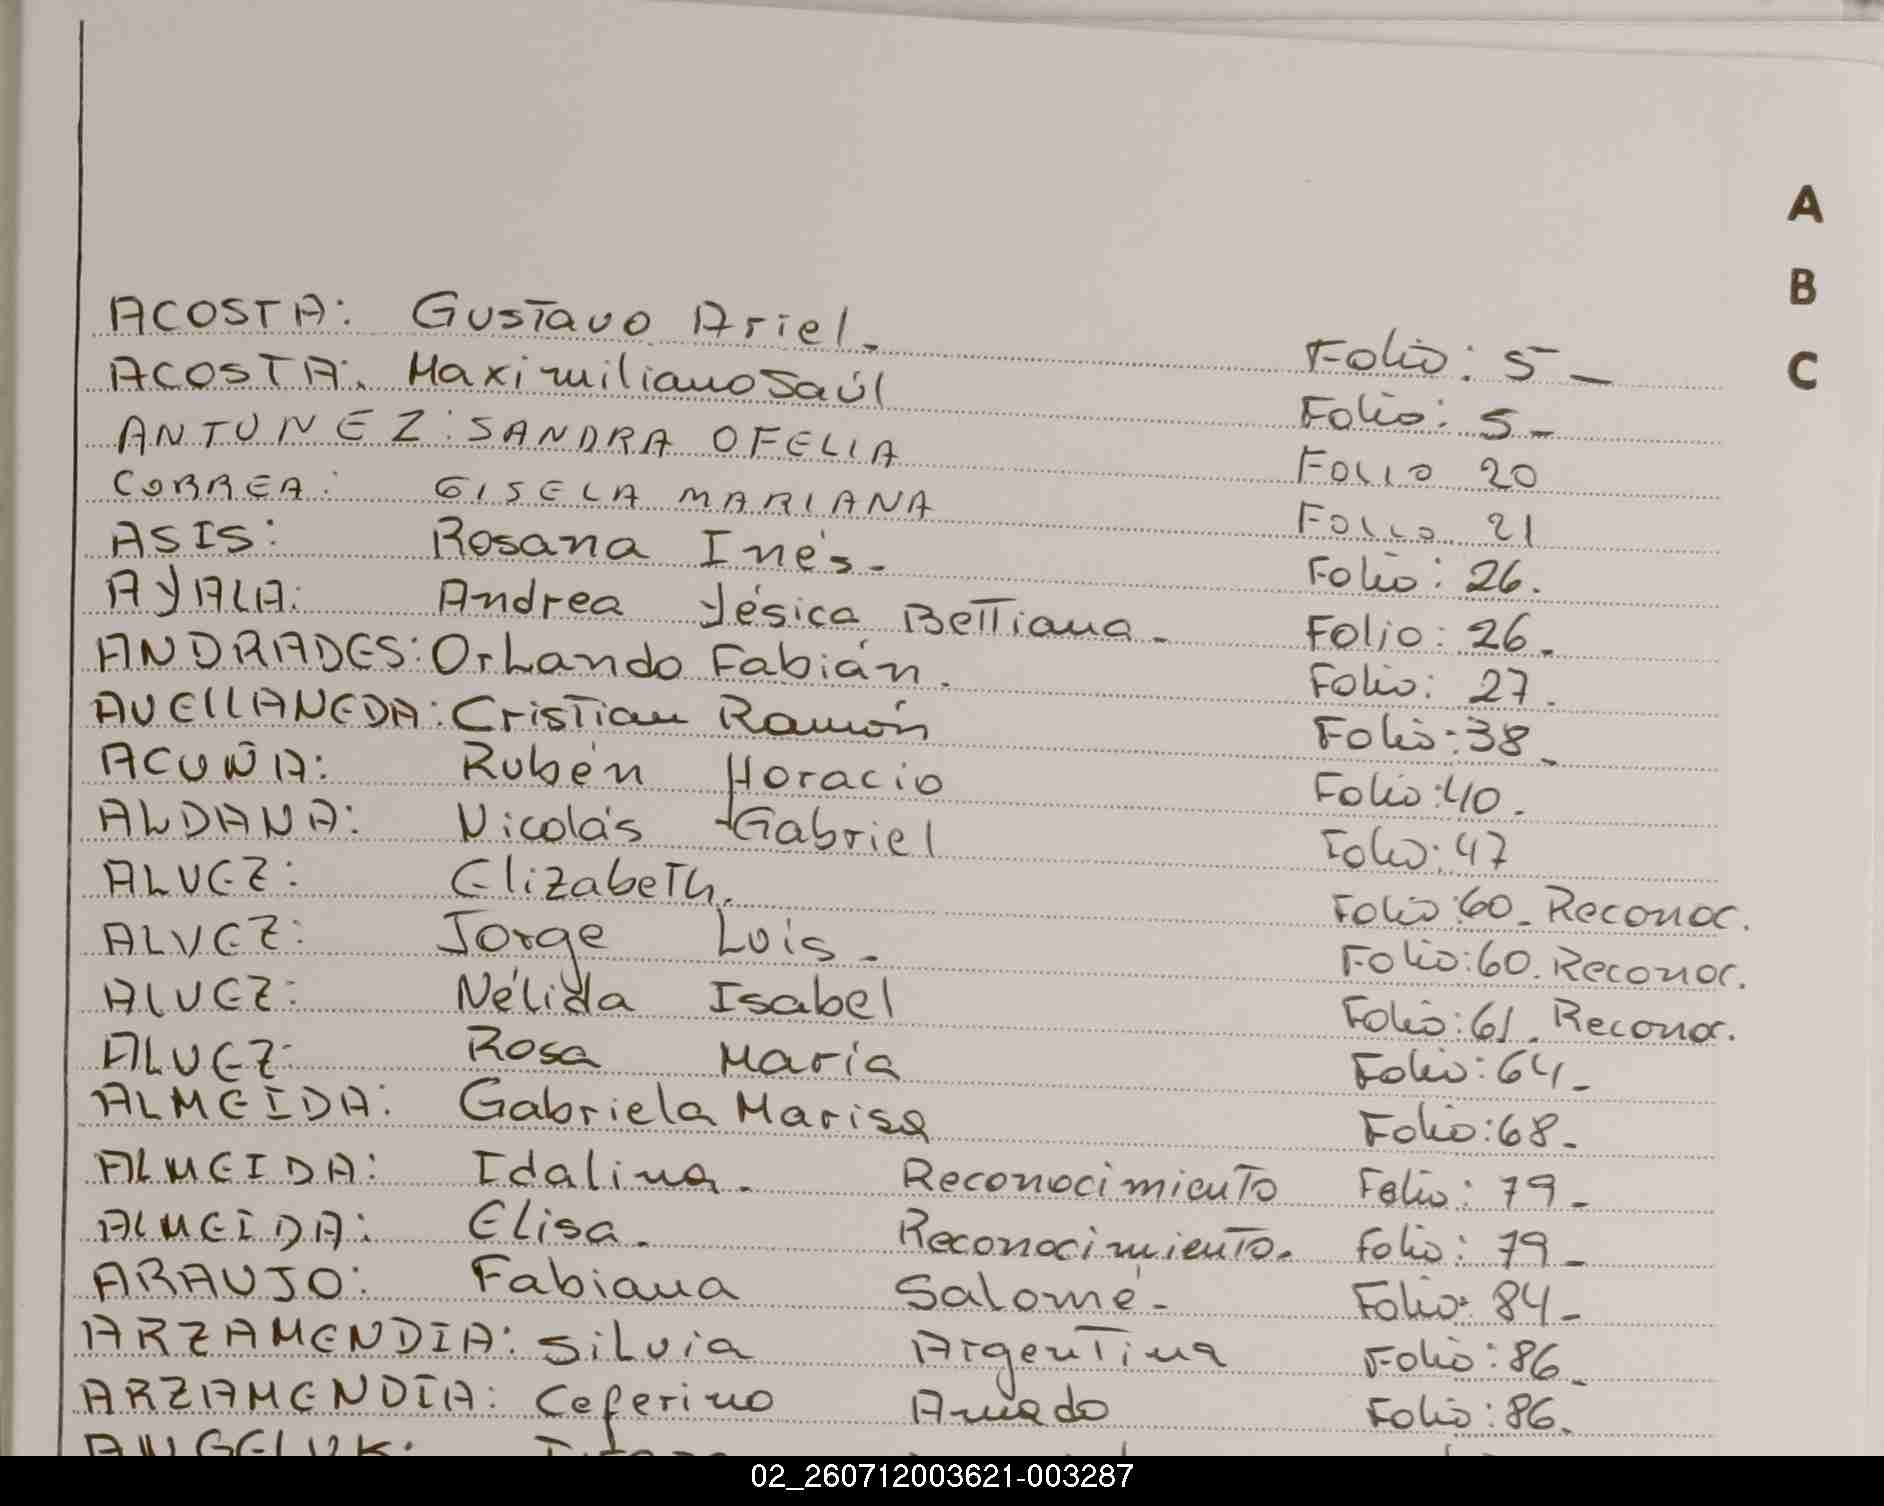 A
B
C
ACOSTA: Gustavo Ariel. Folio: 5-
ACOSTA: Maximiliano Saúl Folio: 5-
ANTUNEZ: SANDRA OFELIA FOLIO 20
CORREA: GISELA MARIANA FOLIO 21
ASIS: Rosana Inés. Folio: 26.
AYALA: Andrea Yésica Bettiana. Folio: 26.
ANDRADES: Orlando Fabián. Folio: 27.
AVELLANEDA: Cristian Ramón Folio: 38.
ACUÑA: Rubén Horacio Folio: 40.
ALDANA: Nicolás Gabriel Folio: 47
ALVEZ: Elizabeth. Folio: 60. Reconoc.
ALVEZ: Jorge Luis. Folio: 60. Reconoc.
ALVEZ: Nélida Isabel Folio: 61. Reconoc.
ALVEZ: Rosa María Folio: 64.
ALMEIDA: Gabriela Marisa Folio: 68.
ALMEIDA: Idalina. Reconocimiento Folio: 79.
ALMEIDA: Elisa. Reconocimiento. Folio: 79.
ARAUJO: Fabiana Salomé. Folio: 84.
ARZAMENDIA: Silvia Argentina Folio: 86.
ARZAMENDIA: Ceferino Amado Folio: 86.
02_260712003621-003287